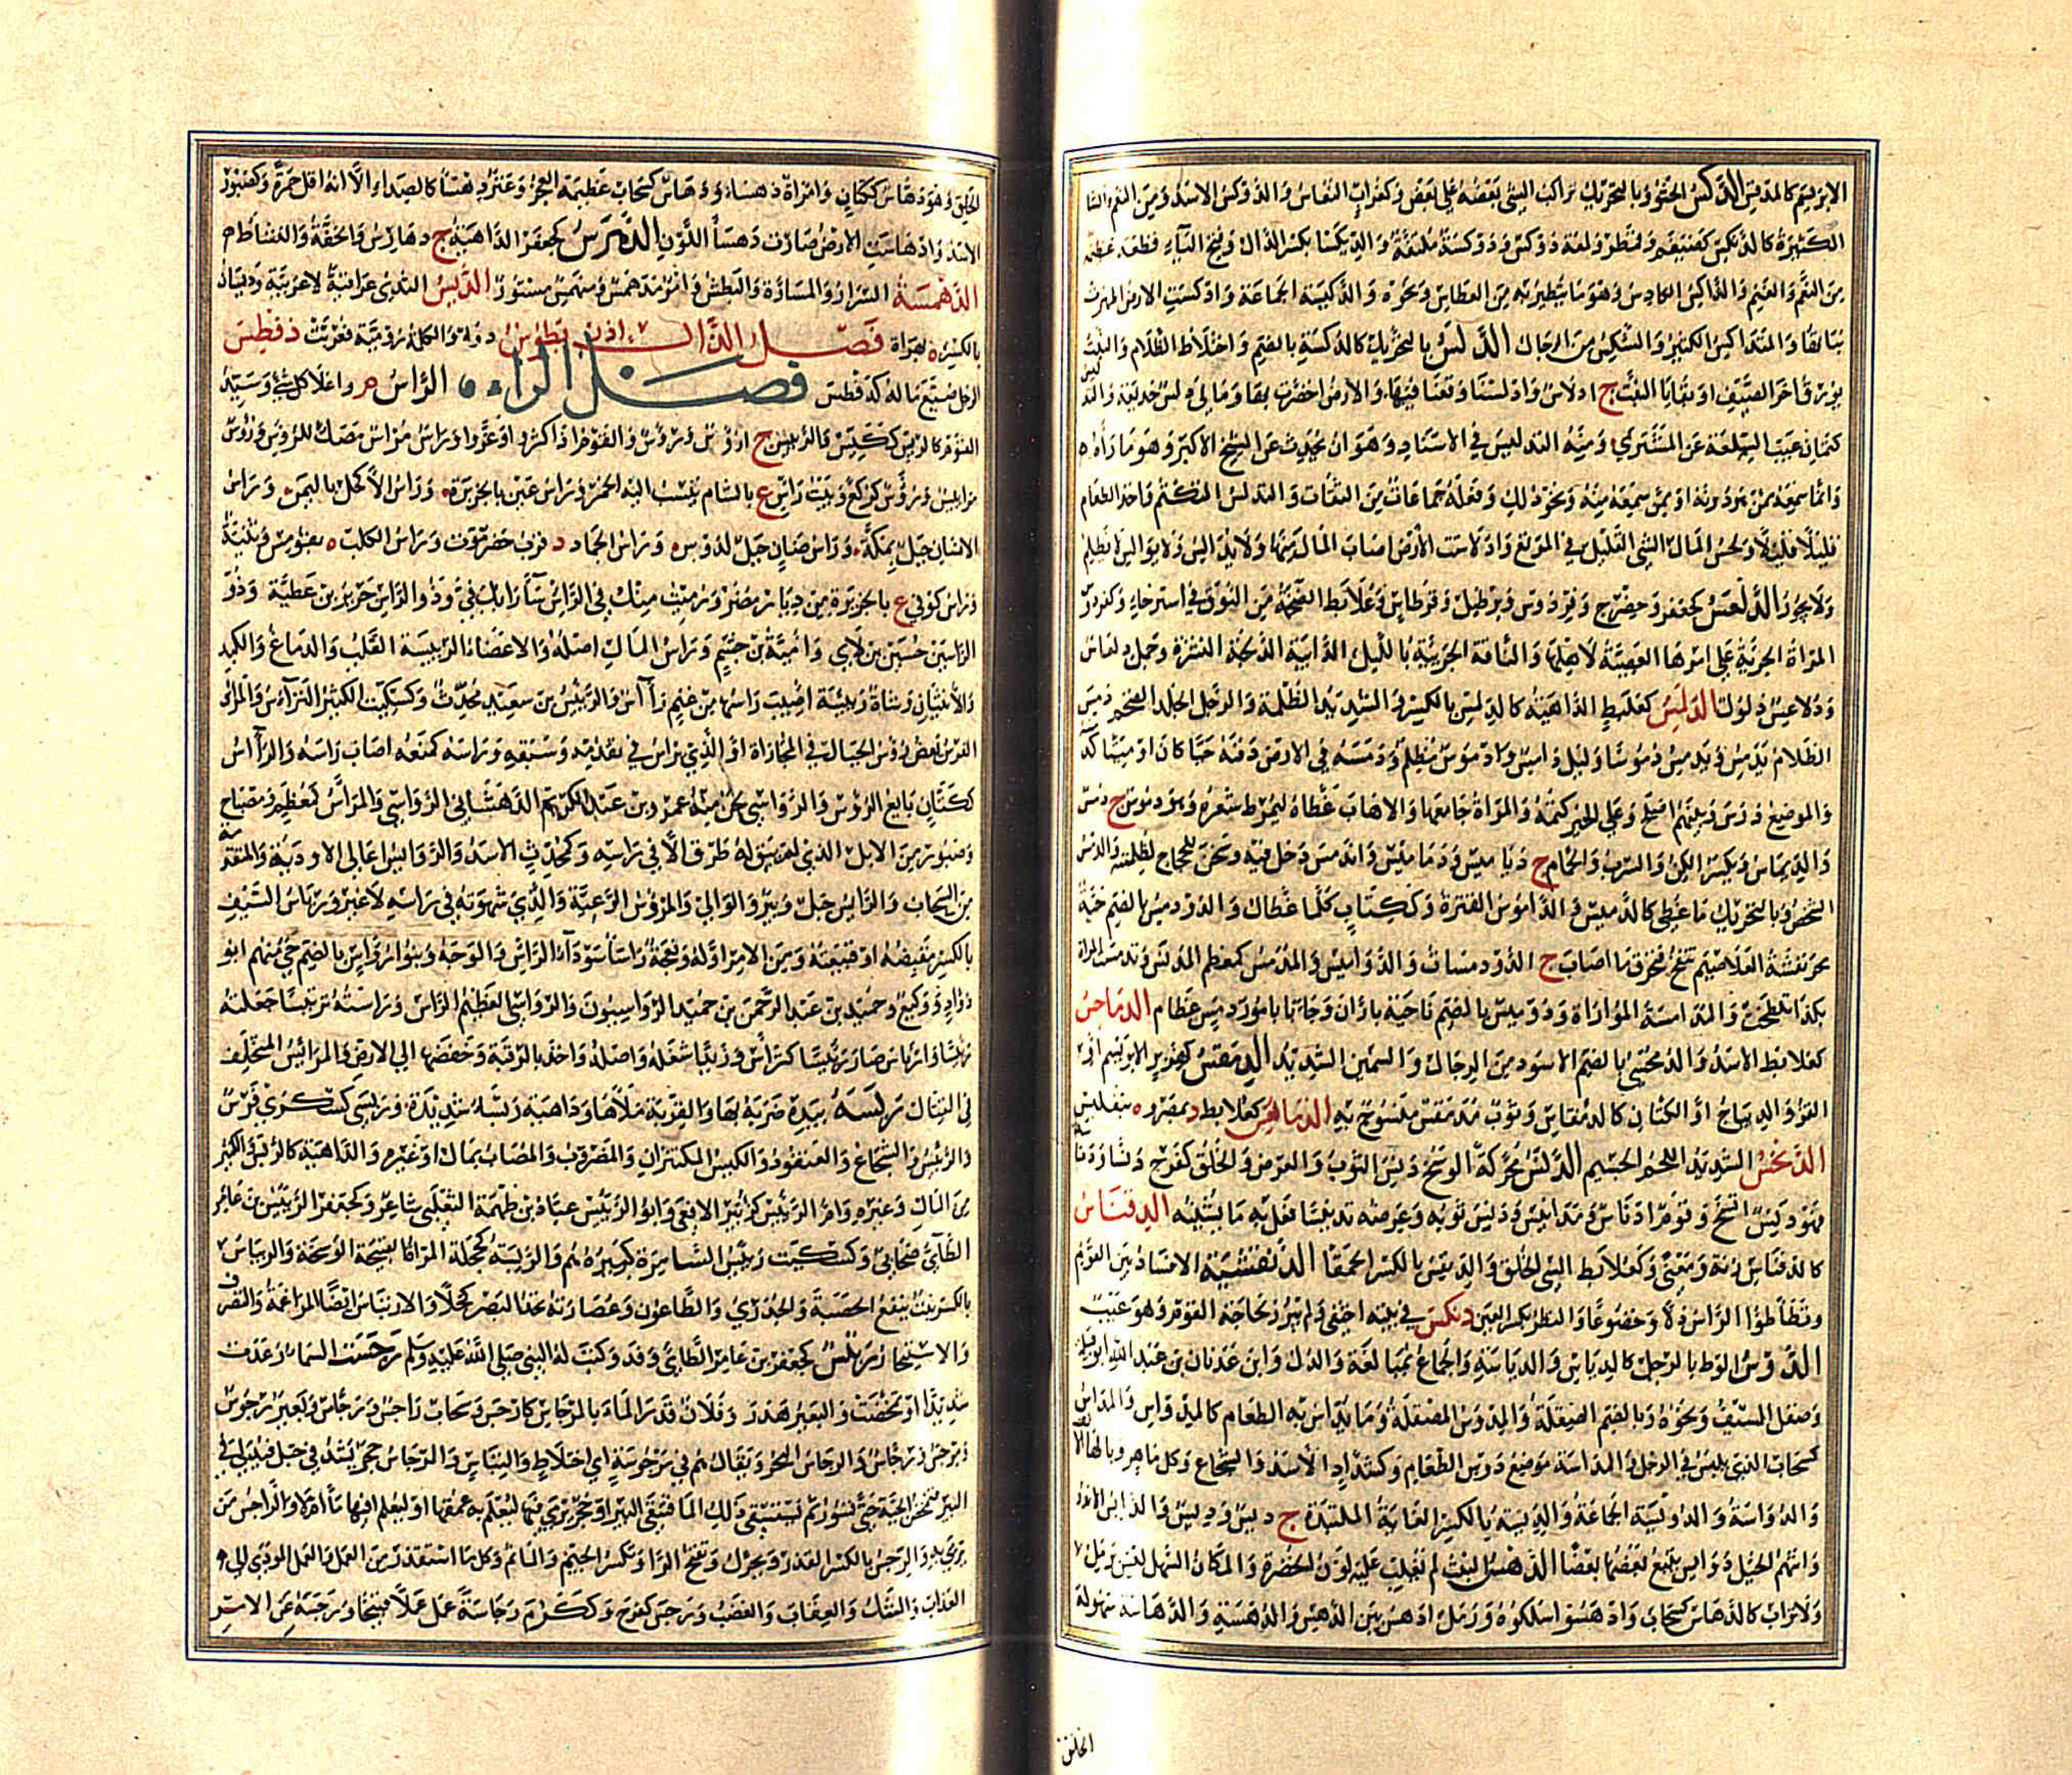 الابريسم كالمدقس الدكس الحثو وبالتحريك تراكب الشى بعضه على بعض وكغراب النعاس والدوكس الاسد ومن النعم والشا
الكثيرة كالديكس كضيغم وقمطر ولمعة دوكس ودوكسة ملتفة والديكسا بكسر الدال وفتح الياء قطعة عظيمة
من النعم والغنم والداكس الكادس وهو ما يتطير به من العطاس ونحوه والدكيسة الجماعة وادكست الارض اظهرت
نباتها والمتداكس الكثير والشكس من الرجال الدلس بالتحريك الظلمة كالدلسة بالضم واختلاط الظلام والنبت
يورق اخر الصيف او بقايا النبت ج ادلاس وادلسنا وقعنا فيها والارض اخضرت بها وما لى فيه دلس خديعة والتدليس
كتمان عيب السلعة عن المشترى ومنه التدليس فى الاسناد وهو ان يحدث عن الشيخ الاكبر وهو ما رآه
وانما سمعه ممن هو دونه او ممن سمعه منه ونحو ذلك وفعله جماعات من الثقات والتدلس التكتم واخذ الطعام
قليلا قليلا ولحس المال الشى القليل فى المرتع وادلاست الارض اصاب المال منها ولا يدالس ولا يوالس لا يظلم
ولا يخون الدلعس كجعفر وحضجر وفردوس وبرطيل وقرطاس وعلابط الضخمة من النوق فى استرخاء وكفردوس
المراة الجرية على امرها العصية لاهلها والناقة الجريئة بالليل الدائبة الدلجة النشزة وجمل دلعاس
ودلاعس ذلول الدلمس كعلبط الداهية كالدلمس بالكسر والشديد الظلمة والرجل الجلد الضخم دمس
الظلام يدمس ويدمس دموسا وليل دامس وادموس مظلم ودمسه فى الارض دفنه حيا كان او ميتا
والموضع درس وبينهم اصلح وعلى الخبر كتمه والمراة جامعها والاهاب غطاه ليمرط شعره وهو دموس ج دمس
والديماس ويكسر الكن والسرب والحمام ج دياميس ودماميس واندمس دخل فيه وسجن للحجاج لظلمته والدمس
الشخص وبالتحريك ما غطى كالدميس والداموس القترة وككتاب كلما غطاك والدودمس بالضم حية
محرنفشة الغلاصيم تنفخ فتحرق ما اصابت ج الدودمسات والدواميس والمدمس كمعظم المدنس وتدمست المراة
بكذا تلطخت والمدامسة المواراة ودوميس بالضم ناحية باران وجاءنا بامور دمس عظام الدماحس
كعلابط الاسد والدمحسى بالضم الاسود من الرجال والسمين الشديد الدمقس كهزبر الابريسم او
القز والديباج او الكتان كالدمقاس وثوب مدمقس منسوج به الدماهس كعلابط
الدنخس الشديد اللحم الجسيم الدنس محركة الوسخ دنس الثوب والعرض والخلق كفرح دنسا ودناسة
فهو دنس اتسخ وقوم ادناس ومدانيس ودنس ثوبه وعرضه تدنيسا فعل به ما يشينه الدنفاس
كالدفناس زنة ومعنى وكعلابط السى الخلق والدنفس بالكسر الحمقا الدنقسة الافساد بين القوم
وتطاطؤ الراس ذلا وخضوعا والنظر بكسر العين دنكس فى بيته اختفى ولم يبرز لحاجة القوم وهو عيب
الدوس الوط بالرجل كالدياس والدياسة والجماع بمبالغة والذل وابن عدنان بن عبد الله ابو قبيلة
وصقل السيف ونحوه وبالضم الصقلة والمدوس المصقلة وما يداس به الطعام كالمدواس والمداس
كسحاب الذى يلبس فى الرجل والمداسة موضع دوس الطعام وكشداد الاسد والشجاع وكل ماهر وبالها الانف
والدواسة والدويسة الجماعة والديسة بالكسر الغابة الملتبدة ج ديس وديس والدائس الاندر
واتتهم الخيل دوائس يتبع بعضها بعضا الدهس النبت لم يغلب عليه لون الخضرة والمكان السهل ليس برمل
ولا تراب كالدهاس كسحاب وادهسوا سلكوه ورمل ادهس بين الدهس والدهسة والدهاسة سهولة
الخلق
الخلق وهو دهاس ككتان وامراة دهساء ودهاس كسحاب عظيمة العجز وعنز دهسا كالصداء الا انه اقل حمرة وكصبور
الاسد وادهاست الارض صارت دهسا اللون الدهرس كجعفر الداهية ج دهارس والخفة والنشاط
الدهمسة السرار والمسارة والبطش وامر مدهمس ومنهمس مستور الديس الثدى عراقية لا عربية وديسان
بالكسر ة بهراة فصل الذال اذريطوس دواء والكلمة رومية فعربت ذفطس
الرجل ضيع ماله كدفطس فصل الراء الراس م واعلا كل شى وسيد
القوم كالريس ككيس والرئيس ج ارؤس ورؤس والقوم اذا كثروا وعزوا وراس مراس مصك للرؤس ورؤس
مرائيس ورؤس كركع وبيت راس ع بالشام ينسب اليه الخمر وراس عين بالجزيرة وراس الاكحل باليمن وراس
الانسان جبل بمكة وراس ضان جبل لدوس وراس الحمار د قرب حضرموت وراس الكلب ة بقومس وثنية
وراس كوفى ع بالجزيرة من ديار مضر ورميت منك فى الراس ساء رايك فى وذو الراس جرير بن عطية وذو
الراسين خشين بن لاى وامية بن جشم وراس المال اصله والاعضاء الرئيسة القلب والدماغ والكبد
والانثيان وشاة رئيسة اصيب راسها من غنم رآسى والرئيس بن سعيد محدث وكسكيت الكثير الترآس والمرآس
الفرس يعض رؤس الخيل فى المجاراة او الذى يراس فى تقدمه وسبقه وراسه كمنعه اصاب راسه والرآس
ككتان بائع الرؤس والرواسى لحن منه عمر بن عبد الكريم الدهستانى الرواسى والمراس كمعظم ومصباح
وصبور من الابل الذى لم يبق له طرق الا فى راسه وكمحدث الاسد والروائس اعالى الاودية والمتقدمة
من السحاب والرائس جبل وبئر والوالى والمرؤس الرعية والذى شهوته فى راسه لا غير ورئاس السيف
بالكسر مقبضه او قبيعته ومن الامر اوله ونعجة راسا سوداء الراس والوجه وبنو رؤاس بالضم حى منهم ابو
دؤاد ووكيع وحميد بن عبد الرحمن بن حميد الرؤاسيون والرؤاسى العظيم الراس وراسته ترئيسا جعلته
رئيسا وارتاس صار رئيسا كتراس وزيدا شغله واصله واخذ بالرقبة وخفضها الى الارض والمرائس المتخلف
فى القتال ربسه بيده ضربه بها والقربة ملاها وداهية ربساء شديدة وربسى كسكرى فرس
والربيس الشجاع والعنقود والكبيس المكتنزان والمضروب والمصاب بمال او غيره والداهية كالربس والكثير
من المال وغيره وام الربيس كزبير الافعى وابو الربيس عباد بن طهمة الثعلبى شاعر وكجعفر الربتس بن عامر
الطائى صحابى وكسكيت ربيس السامرة كبيرهم والربسة كخجلة المراة القبيحة الوسخة والريباس
بالكسر نبت ينفع الحصبة والجدرى والطاعون وعصارته تحد البصر كحلا والارتباس ايضا المراغمة والتصرف
والاستخار ربتس كجعفر بن عامر الطائى وفد وكتب له النبى صلى الله عليه وسلم رجست السماء رعدت
شديدا وتمخضت والبعير هدر وفلان قدر الماء بالمرجاس كارجس وسحاب راجس ورجاس وبعير رجوس
ومرجس ورجاس والرجاس البحر ويقال هم فى مرجوسة اى اختلاط والتباس والرجاس حجر يشد فى حبل فيدلى فى
البئر تمخض الحماة حتى تثور ثم يستقى ذلك الما فتنقى البئر او حجر يرمى فيها ليعلم به عمقها او ليعلم افيها ماء ام لا والراجس من
يرمى به والرجس بالكسر القذر ويحرك وتفتح الرا وتكسر الجيم والماثم وكل ما استقذر من العمل والعمل المودى الى
العذاب والشك والعقاب والغضب ورجس كفرح وككرم رجاسة عمل عملا قبيحا ورجسه عن الامر